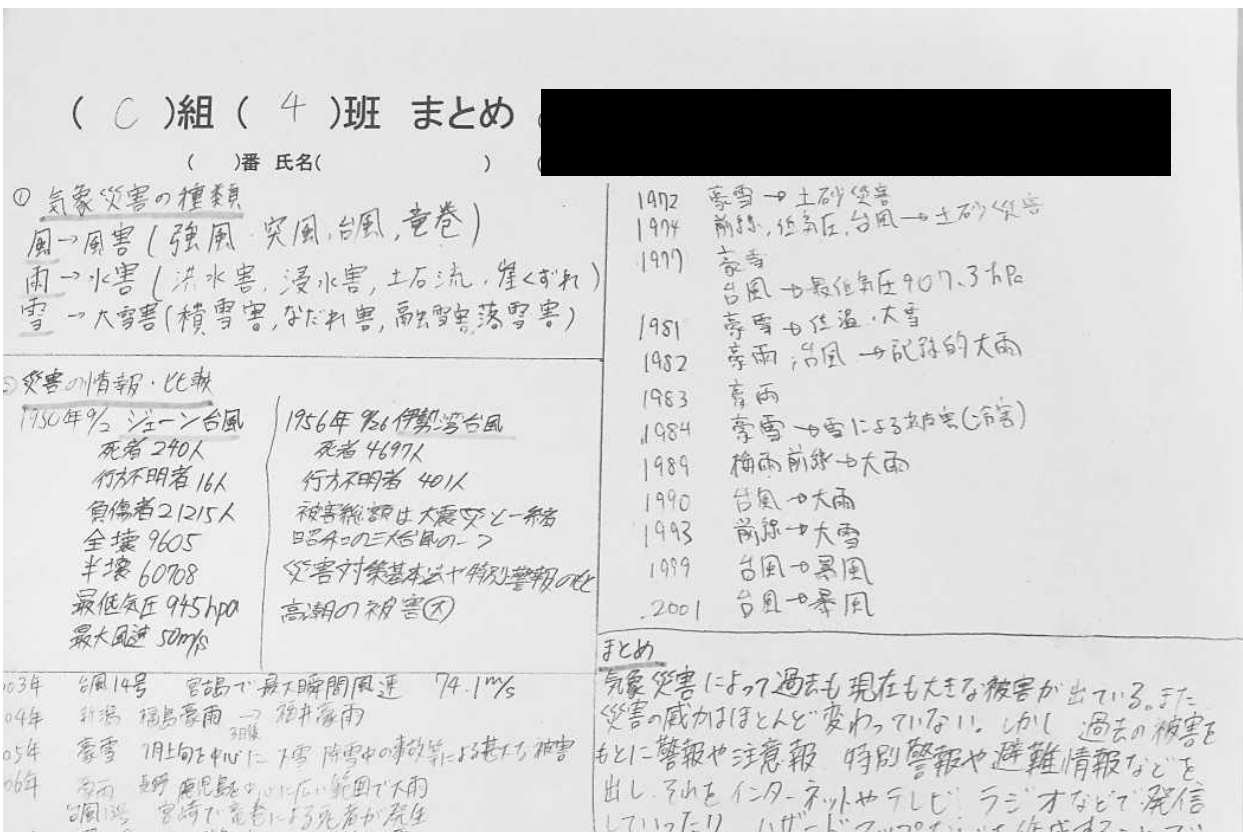 ( C )組 ( 4 )班 まとめ
( )番 氏名( )
① 気象災害の種類
風→風害(強風・突風,台風,竜巻)
雨→水害(洪水害,浸水害,土石流,崖くずれ)
雪→大雪害(積雪害,なだれ害,融雪害,落雪害)
災害の情報・比較
1950年9/2 ジェーン台風
死者240人
行方不明者16人
負傷者21215人
全壊9605
半壊60708
最低気圧945hpa
最大風速50m/s
1956年 9/26 伊勢湾台風
死者4697人
行方不明者 401人
被害総額は大震災と一緒
昭和の三大台風の一つ
災害対策基本法や特別警報のもと
高潮の被害大
03年 台風14号 宮古島で最大瞬間風速 74.1m/s
04年 新潟 福島豪雨→福井豪雨
05年 豪雪 1月上旬を中心に大雪 除雪中の事故等による甚大な被害
3日間
06年 豪雨 長野 鹿児島を中心に広い範囲で大雨
台風13号 宮崎で竜巻による死者が発生
1972 豪雪→土砂災害
1974 前線,低気圧,台風→土砂災害
1977 豪雪
台風→最低気圧907.3hPa
1981 豪雪→低温・大雪
1982 豪雨,台風→記録的大雨
1983 豪雨
1984 豪雪→雪による被害(冷害)
1989 梅雨前線→大雨
1990 台風→大雨
1993 前線→大雪
1999 台風→暴風
2001 台風→暴風
まとめ
気象災害によって過去も現在も大きな被害が出ている。また
災害の威力はほとんど変わっていない。しかし 過去の被害を
もとに警報や注意報 特別警報や避難情報などを
出し、それをインターネットやテレビ ラジオなどで発信
していったり ハザードマップ